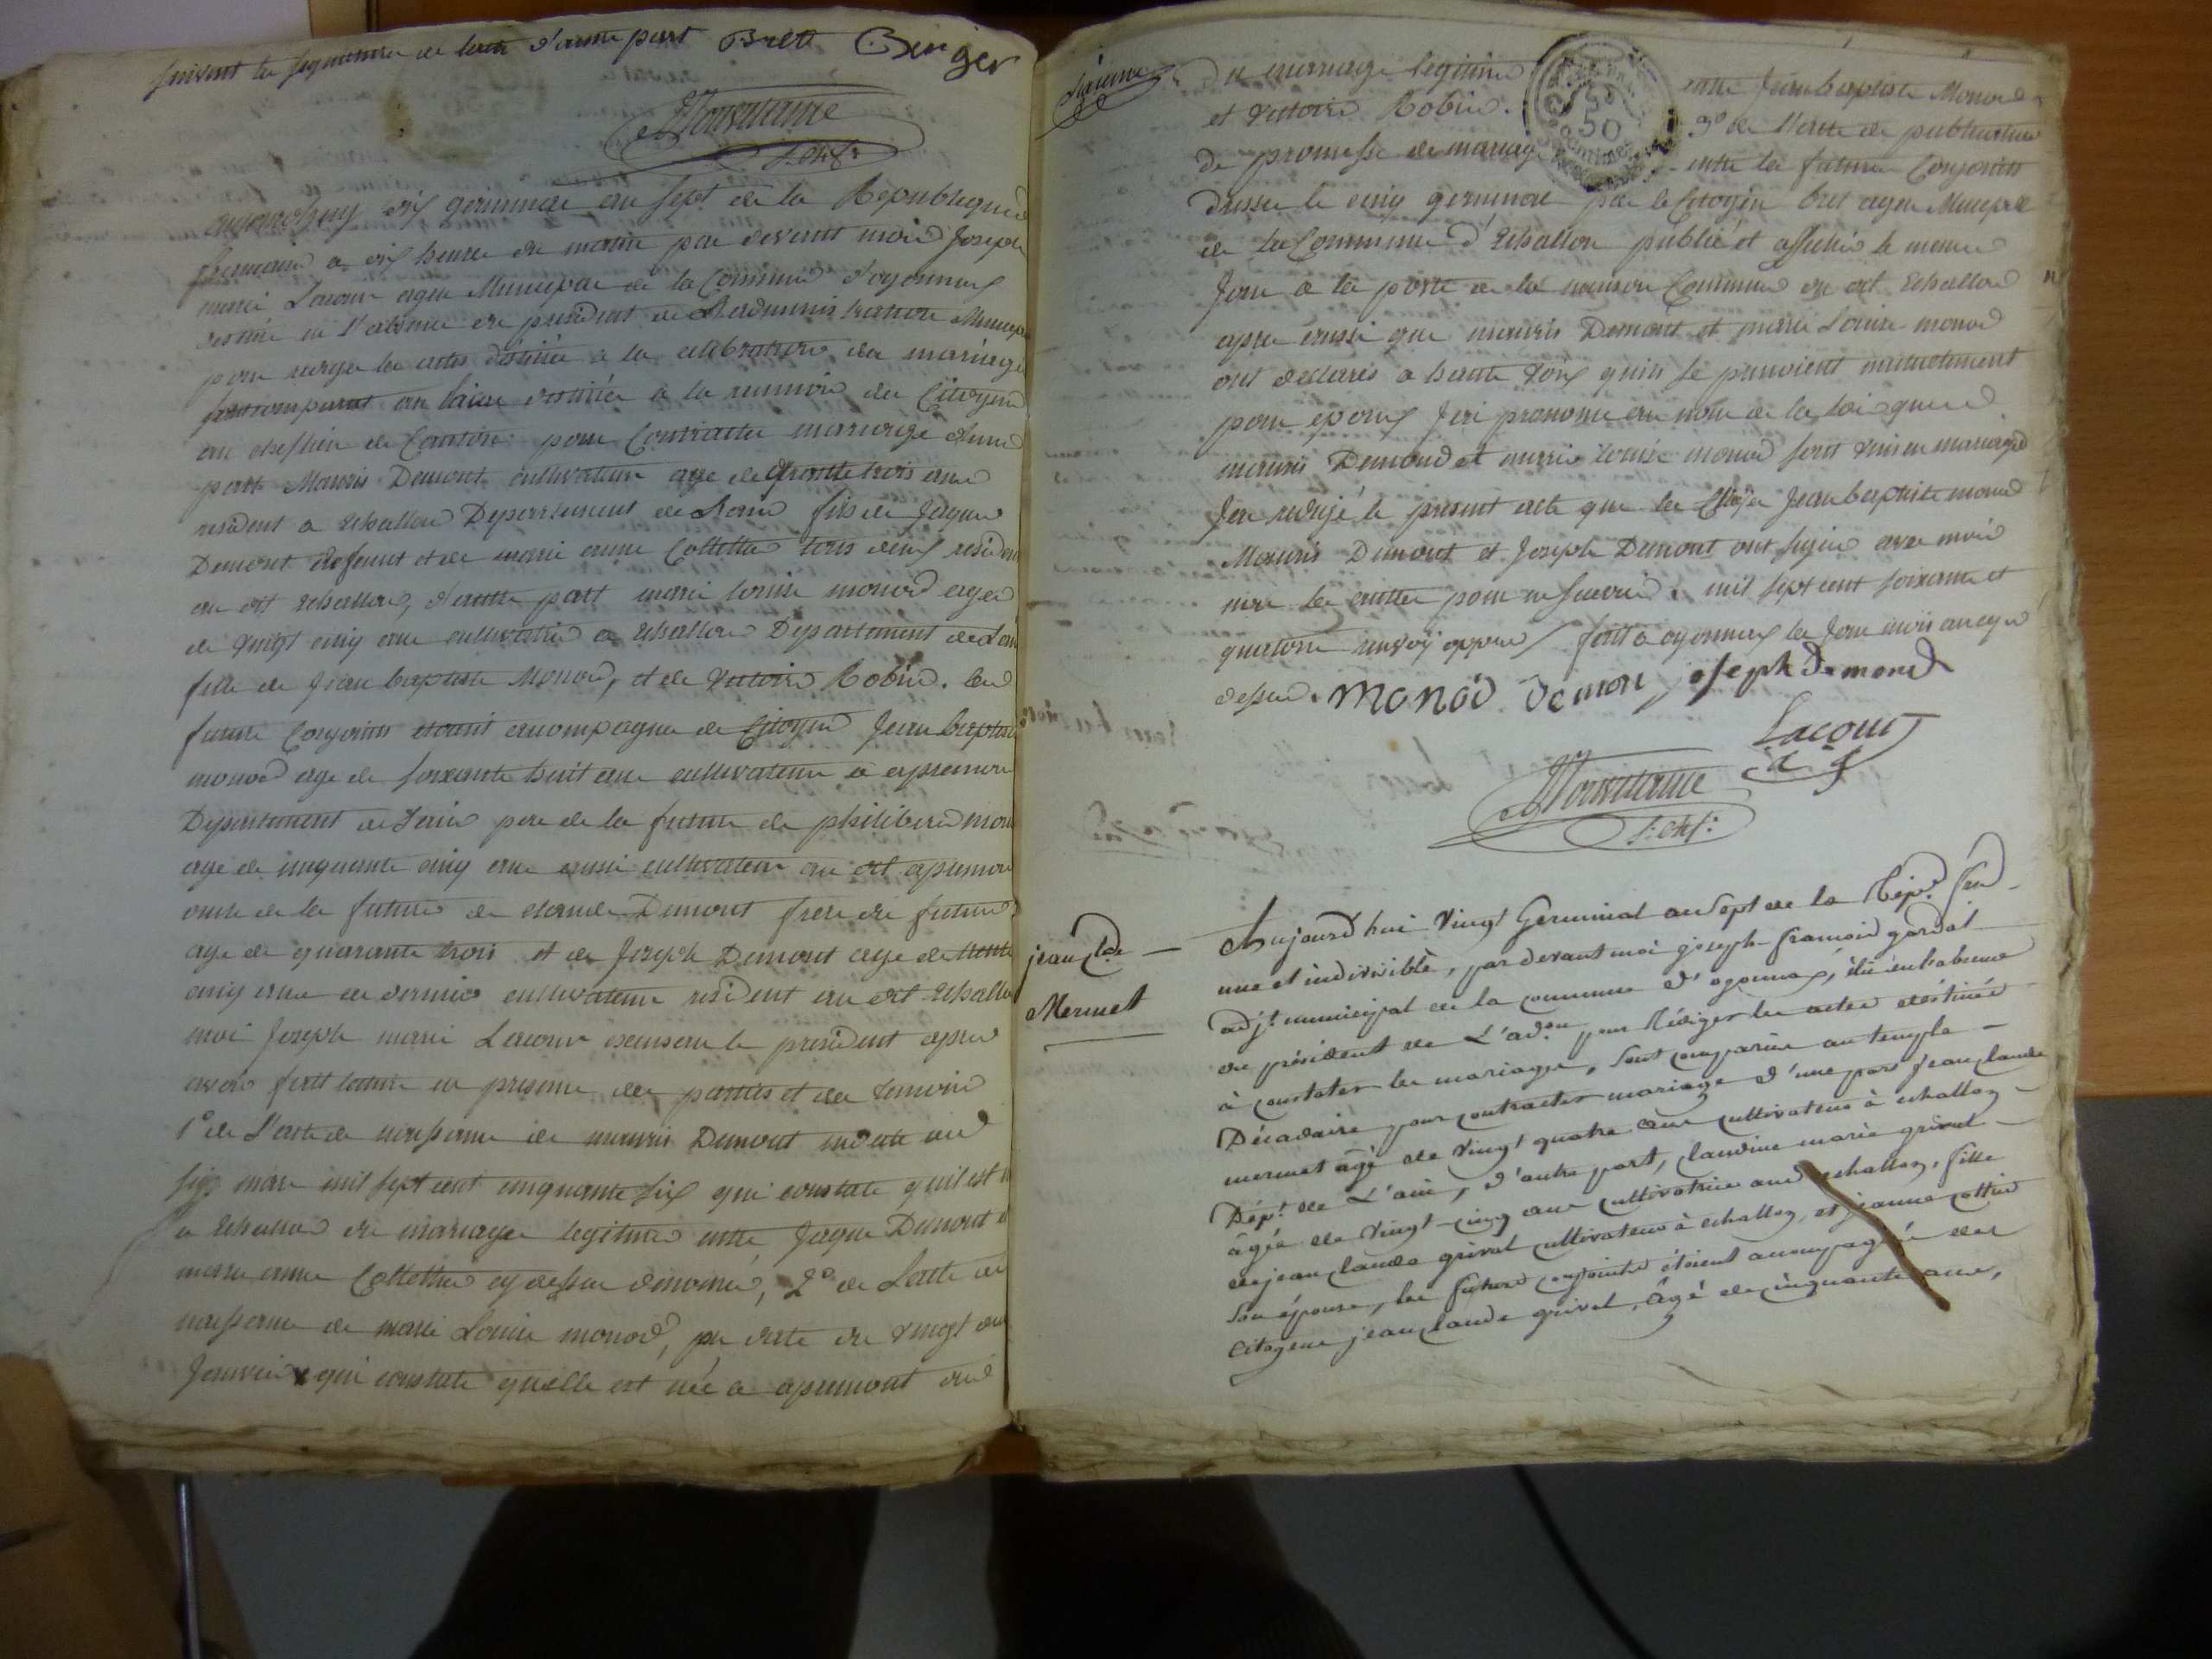 suivent les signatures de toute d'autre part Bret Berger
aujourdhuy dix germinal an sept de la Republique
francaise a dix heure du matin par devant moi Joseph
marie Lacour agen Municipal de la Commune d'oyonnax
en l'absence du president de l'administration Municipale
pour rediger les actes destiné a la celebration des mariage
au la reunion des Citoyens
au cheflieu de Canton pour Contracter mariage d'une
part Mauris Demont cultivateur age de quarante trois ans
resident a Echallon Departement de Lain fils de Jaque
Demont defunt et de marie anne Collettaz tous deux resident
au dit Echallon, d'autre part marie louise monod agee
de vingt cinq ans cultivatrice a Echallon Departement de Lain
fille de Jean baptiste Monod, et de victoire Robin. les
futurs Conjoints etant accompagne de Citoyen Jean baptiste
monod age de soixante huit ans cultivateur a apremont
Departement de Lain pere de la future de philibert mono
age de cinquante cinq ans aussi cultivateur au dit apremon
oncle de la future de claude Demont frere du futur
age de quarante trois et de Joseph Demont age de trente
cinq ans ce dernier cultivateur resident au dit Echallon
moi Joseph marie Lacour le president apres
avoir fait lecture en presence des parties et des temoins
1° de l'acte de naissance de mauris Demont en date du
six mars mil sept cent cinquante six qui constate quil est n
a Echallon du mariage legitime entre Jaque Demont e
marie anne Collettaz cy dessus denomé, 2° de Lacte de
naissance de marie Louise monod, en date du vingt
Janvier qui constate quelle est née a apremont du
du mariage legitime entre Jean baptiste Monod
et victoire Robin. 3° de l'acte de publication
de promesse de mariage entre les futurs Conjoints
dressé le cinq germinal par le Citoyen bret agen Municipal
de la Commune d'Echallon publié et affiché le meme
Jour a la porte de la maison Commune du dit Echallon
apres aussi que mauris Demont et marie Louise monod
ont declarés a haute voix quils se prenoient mutuelement
pour epoux J'ai prononce au nom de la loi que
mauris Demond et marie louise monod sont unis en mariage
J'ai redigé le present acte que les Citoyen Jean baptiste monod
Mauris Demont et Joseph Demont ont signé avec moi
non les autres pour ne scavoir. mil sept cent soixante et
quatorze renvoi approuvé fait a oyonnax les Jour mois an cy
dessus. monod Demon joseph Demond
Lacour
a. g.
50
jean Cde
Mermet
Aujourd'hui vingt Germinal an sept de la Rép.e fse
une et indivisible, par devant moi joseph-françois gardat
adj.t municipal de la commune d'oyonnax, élu en l'absence
du président de L'ad.on pour Rédiger les actes destinés
à constater les mariages, sont comparus au temple
Décadaire pour contracter mariage d'une part jean claude
mermet âgé de vingt quatre ans cultivateur à echallon
Dép.t de L'ain, d'autre part, claudine marie grivat
âgée de vingt-cinq ans cultivatrice aud echallon, fille
de jean claude grivat cultivateur à echallon, et jeanne
son épouse, les futurs conjoints étoient accompagnés des
citoyens jean claude grivat, âgé de cinquante ans,